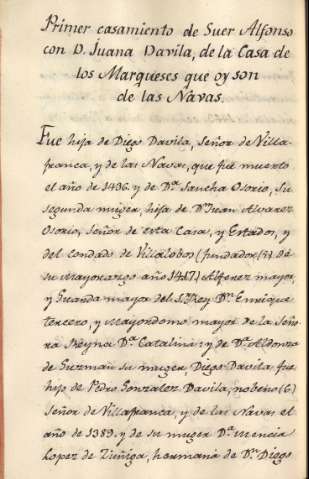 Primer casamiento de Suer Alfonso
con D. Juana Davila, de la Casa de
los Marqueses que oy son
de las Navas.
Fue hija de Diego Davila, Señor de Villa-
franca, y de las Navas, que fue muerto
el año de 1436. y de Dª Sancha Osorio, su
segunda muger, hija de Dn Juan Alvarez
Osorio, Señor de esta Casa, y Estados, y
del condado de Villalobos (fundador (7) de
su Mayorazgo año 1417.) Alferez mayor,
y Guarda mayor del S. Rey Dn Enrique
tercero, y Mayordomo mayor de la Seño-
ra Reyna Dª Catalina: y de Dª Aldonza
de Guzmán su muger Diego Davila fue
hijo de Pedro Gonzalez Davila, (6)
Señor de Villafranca, y de las Navas el
año de 1389. y de su muger Dª Mencia
Lopez de Zuñiga, hermana de Dn Diego